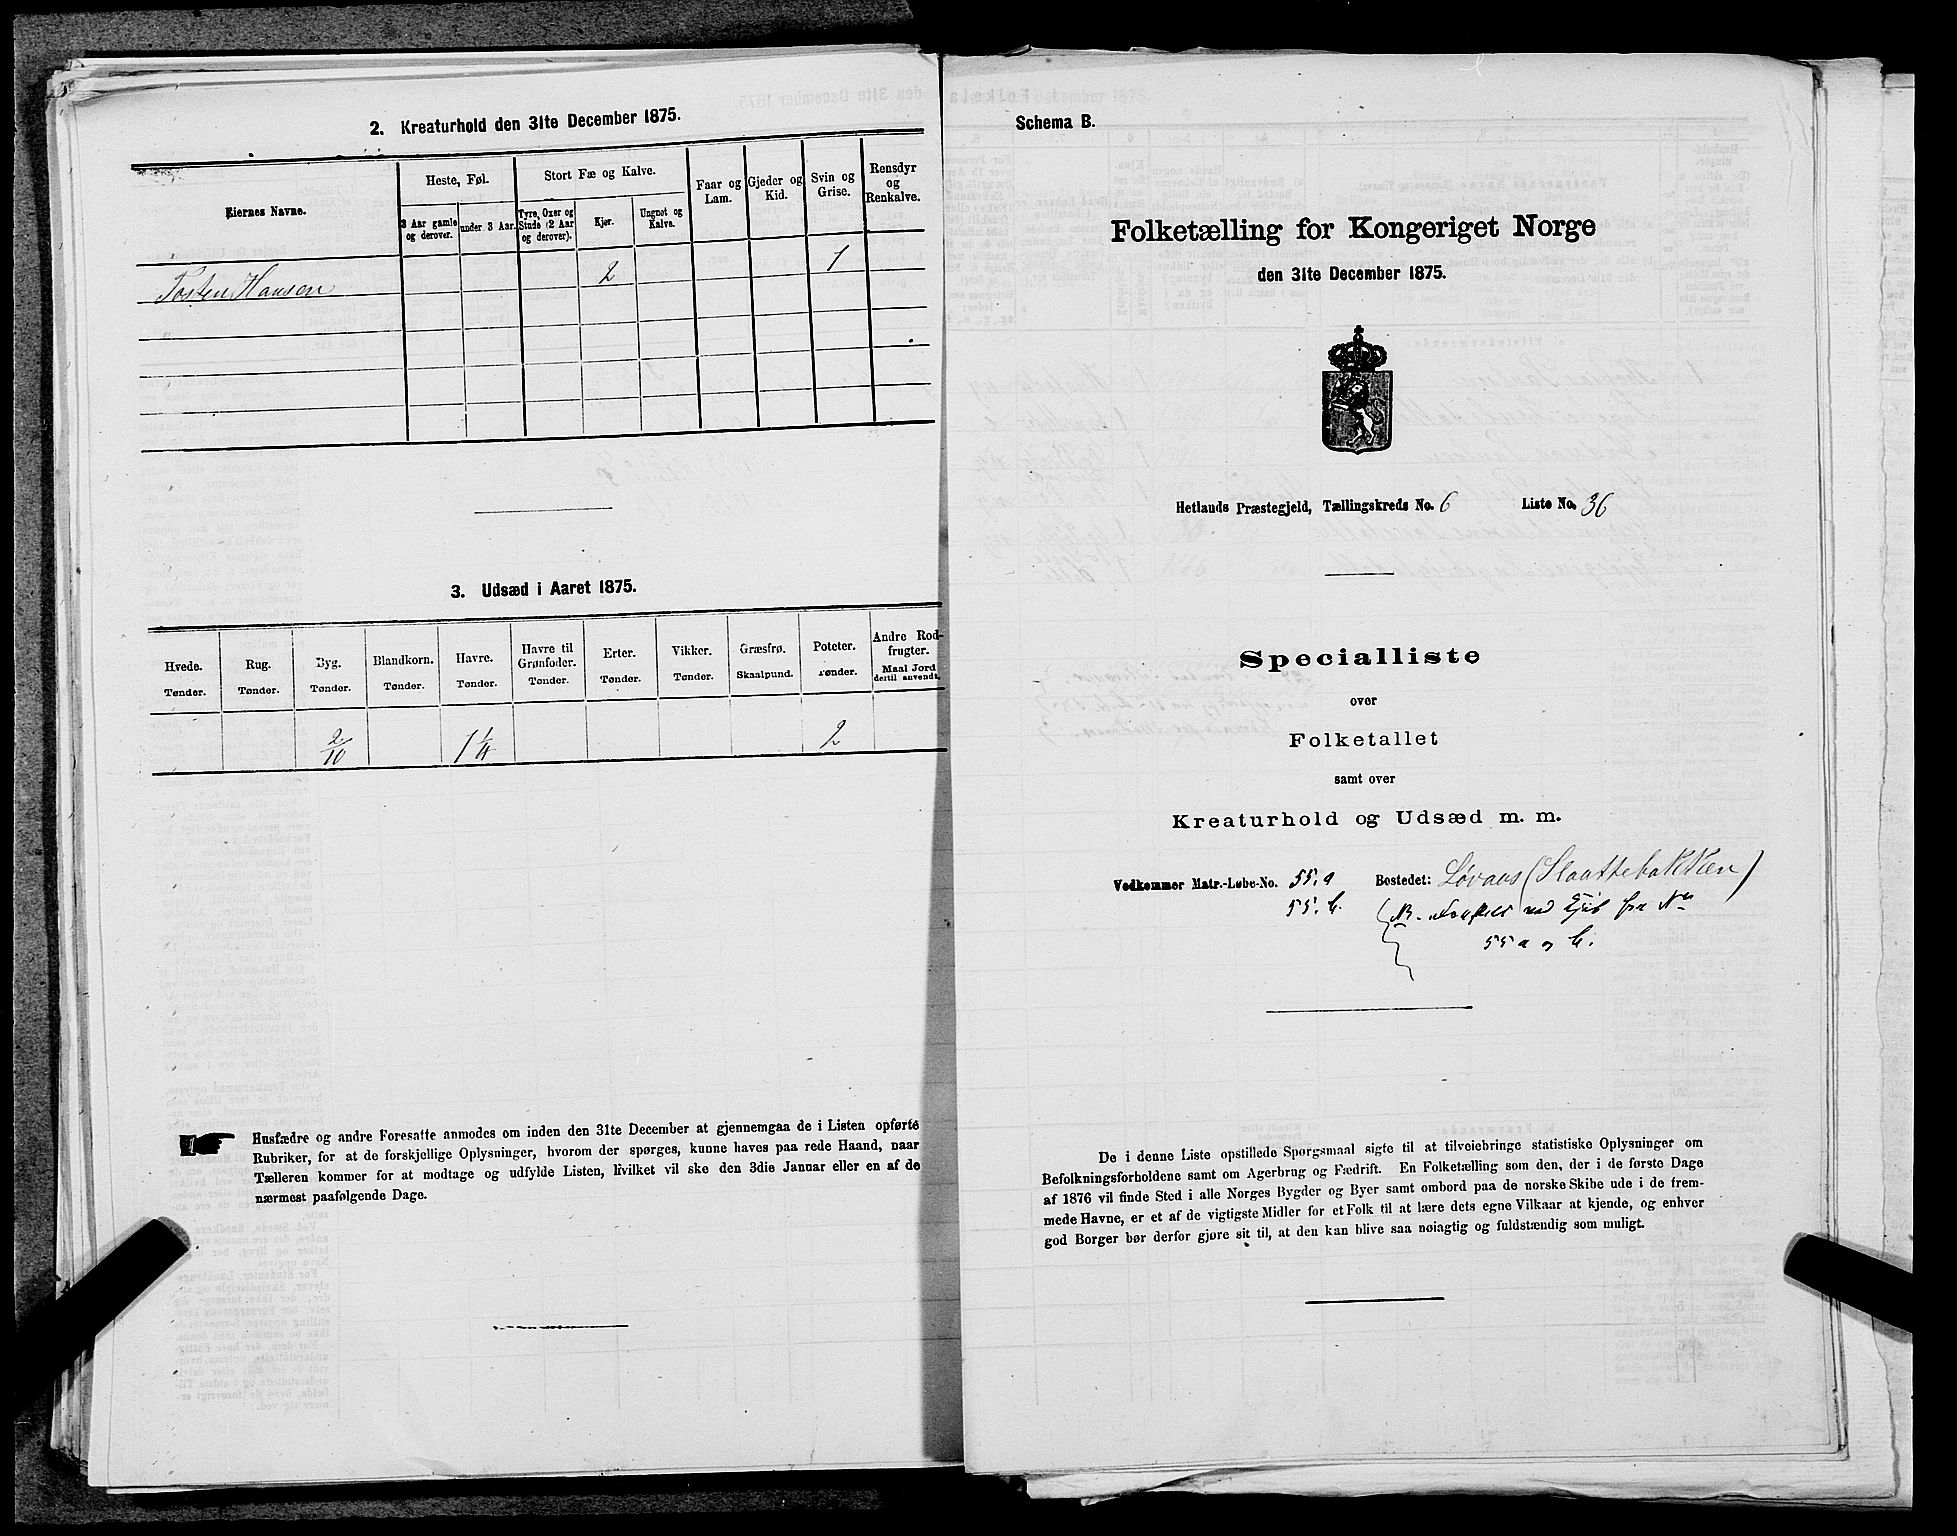 2. Kreaturhold den 31te December 1875.
Eiernes Navne.
Heste, Føl.
Stort Fæ og Kalve.
Faar og Lam.
Gjeder og Kid.
Svin og Grise.
Rensdyr og Renkalve.
3 Aar gamle og derover.
under 3 Aar.
Tyre, Oxer og Stude (2 Aar og derover).
Kjør.
Ungnøt og Kalve.
Tosten Hansen 2 1
3. Udsæd i Aaret 1875.
Hvede. Rug. Byg. Blandkorn. Havre. Havre til Grønfoder. Erter. Vikker. Græsfrø. Poteter. Andre Rodfrugter.
Tønder. Tønder. Tønder. Tønder. Tønder. Tønder. Tønder. Tønder. Skaalpund. Tønder. Maal Jord dertil anvendt.
2/10 1 1/4 2
Husfædre og andre Foresatte anmodes om inden den 31te December at gjennemgaa de i Listen opførte
Rubriker, for at de forskjellige Oplysninger, hvorom der spørges, kunne haves paa rede Haand, naar
Tælleren kommer for at modtage og udfylde Listen, hvilket vil ske den 3die Januar eller en af de
nærmest paafølgende Dage.
Schema B.
Folketælling for Kongeriget Norge
den 31te December 1875.
Hetlands Præstegjeld, Tællingskreds No. 6 Liste No. 36
Specialliste
over
Folketallet
samt over
Kreaturhold og Udsæd m. m.
Vedkommer Matr.-Løbe-No. 55. a Bostedet: Løvaas (Slaattebakken)
55. b. NB. ved fra No
55 a og b.
De i denne Liste opstillede Spørgsmaal sigte til at tilveiebringe statistiske Oplysninger om
Befolkningsforholdene samt om Agerbrug og Fædrift. En Folketælling som den, der i de første Dage
af 1876 vil finde Sted i alle Norges Bygder og Byer samt ombord paa de norske Skibe ude i de frem-
mede Havne, er et af de vigtigste Midler for et Folk til at lære dets egne Vilkaar at kjende, og enhver
god Borger bør derfor gjøre sit til, at den kan blive saa nøiagtig og fuldstændig som muligt.